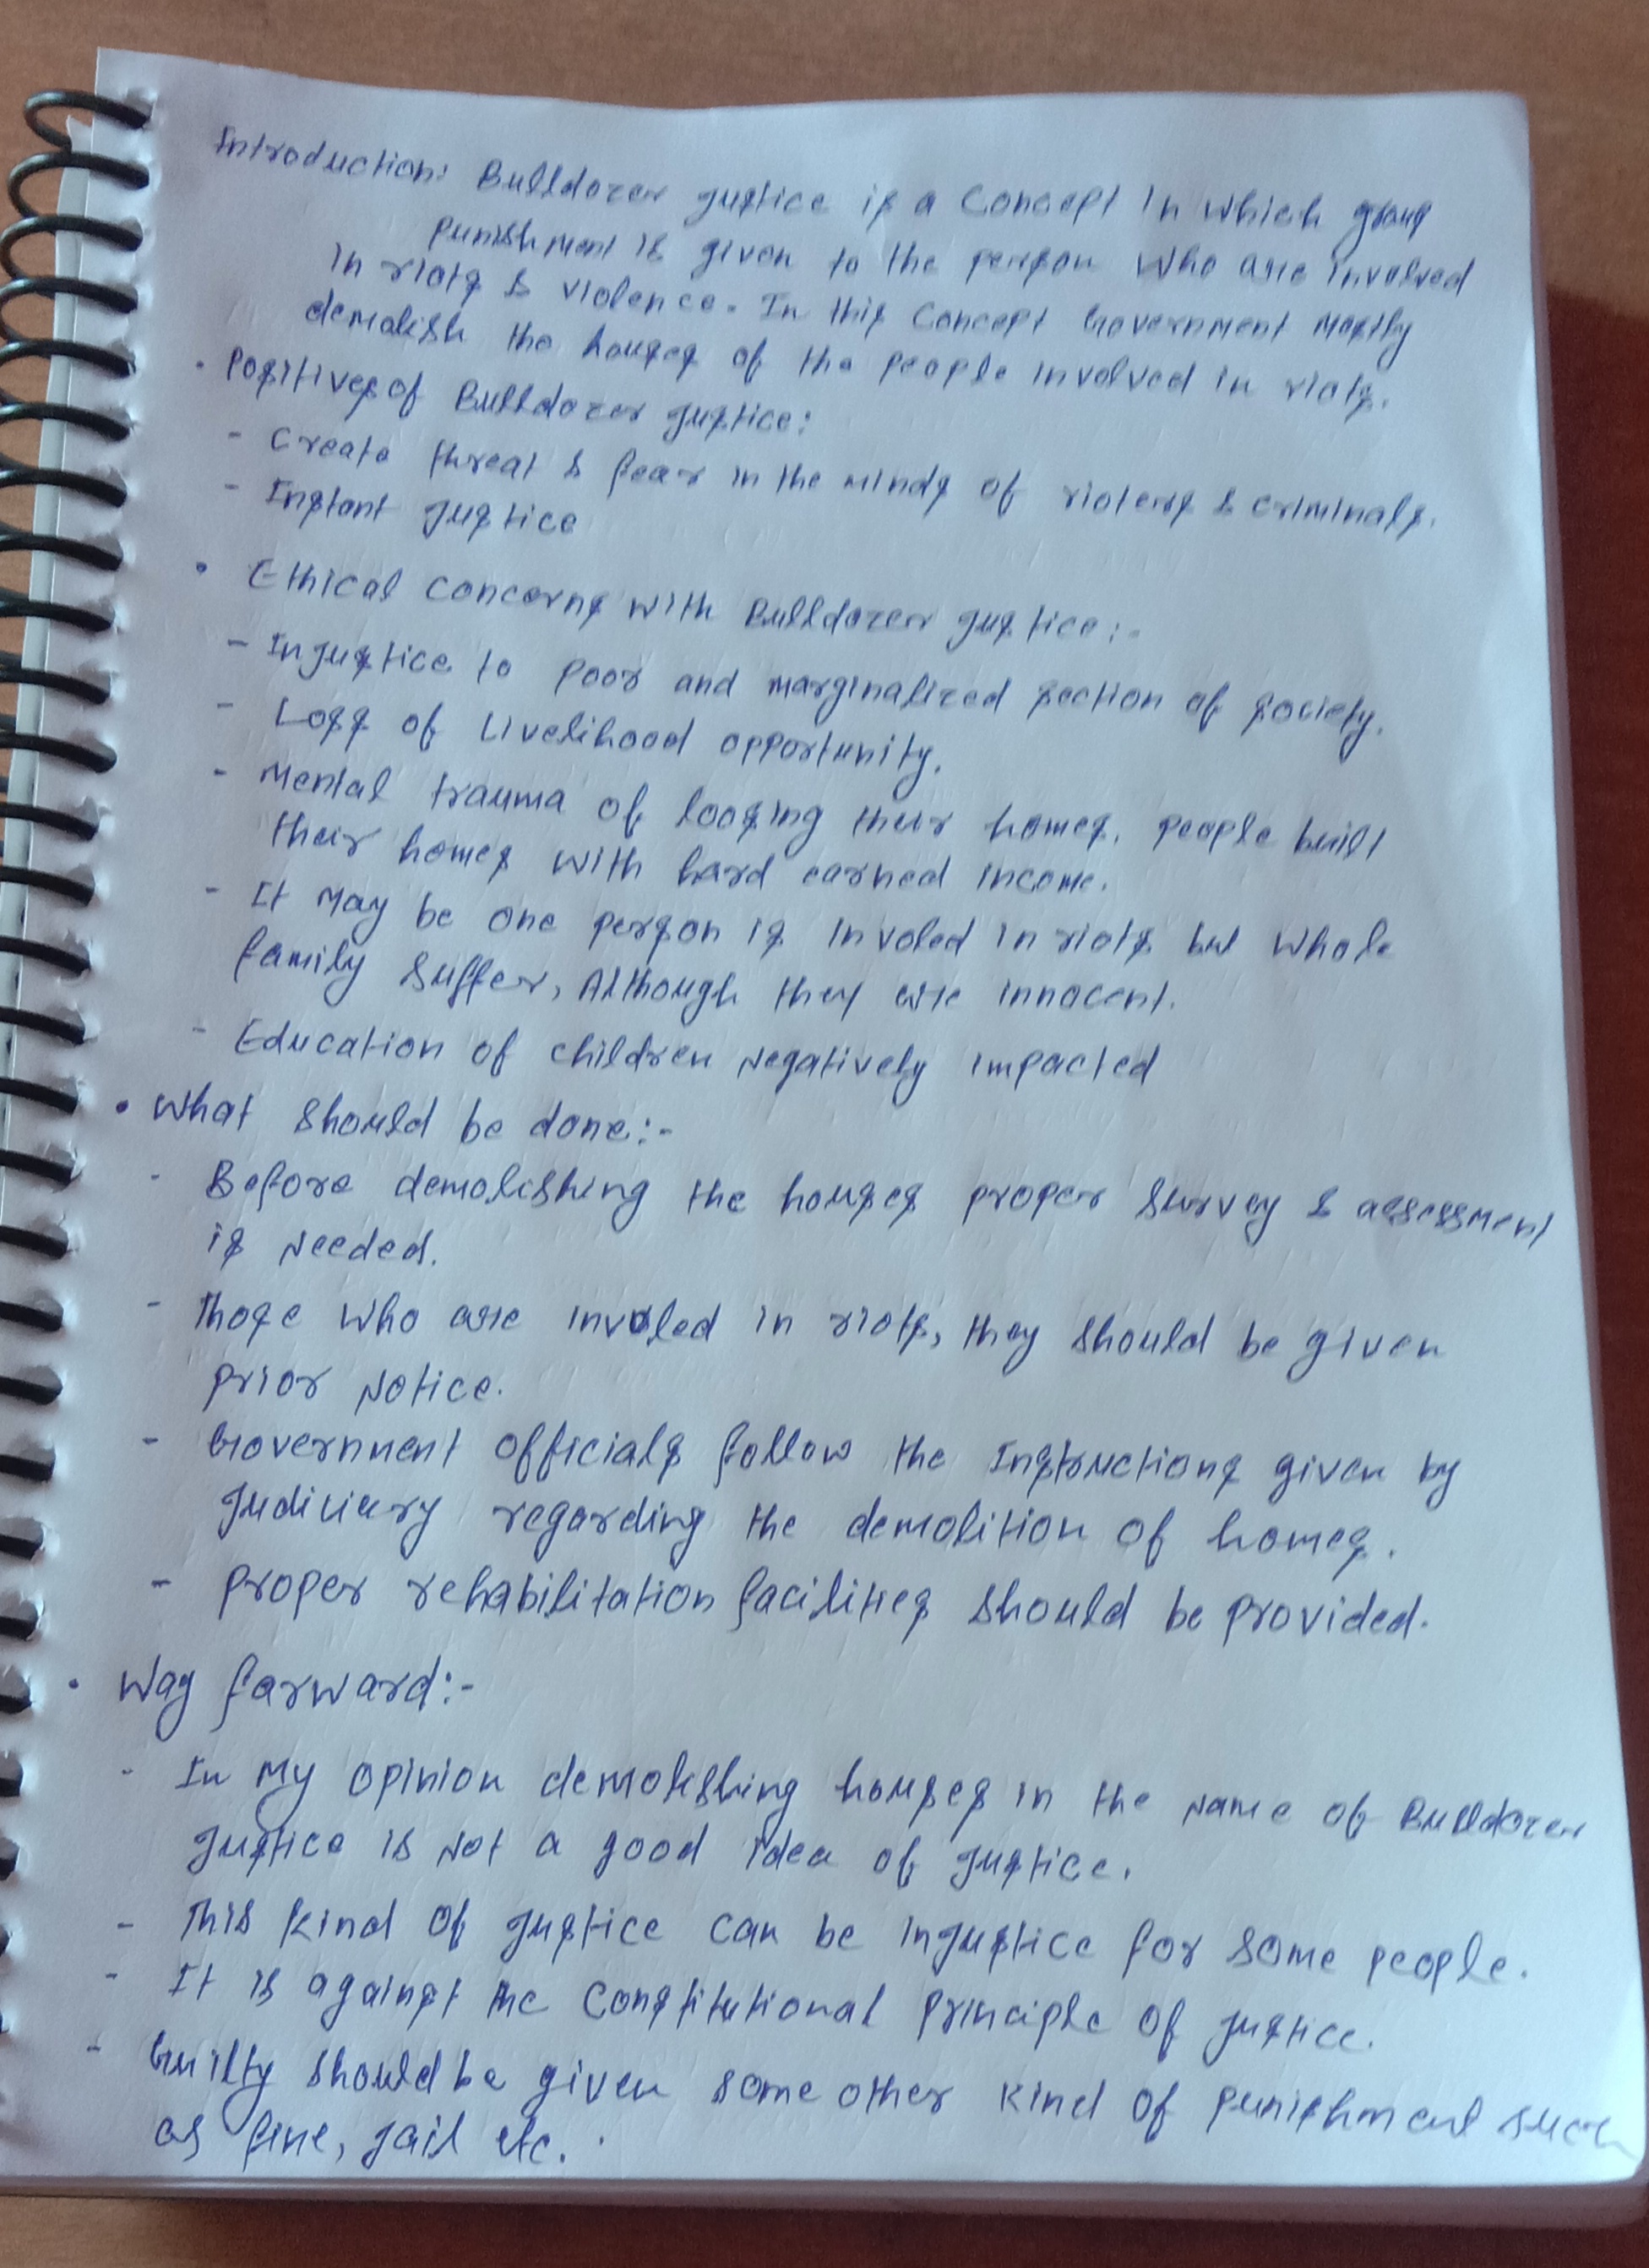 Introduction: Bulldozer justice is a concept in which group
punishment is given to the person who are involved
in riots & violence. In this concept Government mostly
demolish the houses of the people involved in riots.
• Positives of Bulldozer justice:
- Create threat & fear in the minds of rioters & criminals.
- Instant justice
• Ethical concerns with Bulldozer justice:-
- Injustice to poor and marginalized section of society.
- Loss of Livelihood opportunity.
- Mental trauma of loosing their homes. People built
their homes with hard earned income.
- It may be one person is involed in riots but whole
family suffer, Although they are innocent.
- Education of children Negatively impacted
• What should be done:-
- Before demolishing the houses proper survey & assessment
is Needed.
- Those who are involed in riots, they should be given
prior Notice.
- Government officials follow the Instructions given by
Judiciary regarding the demolition of homes.
- Proper rehabilitation facilities should be provided.
• Way forward:-
- In my opinion demolishing houses in the name of Bulldozer
Justice is Not a good idea of Justice.
- This kind of justice can be injustice for some people.
- It is against the Constitutional Principle of justice.
- Guilty should be given some other kind of punishment such
as fine, jail etc.